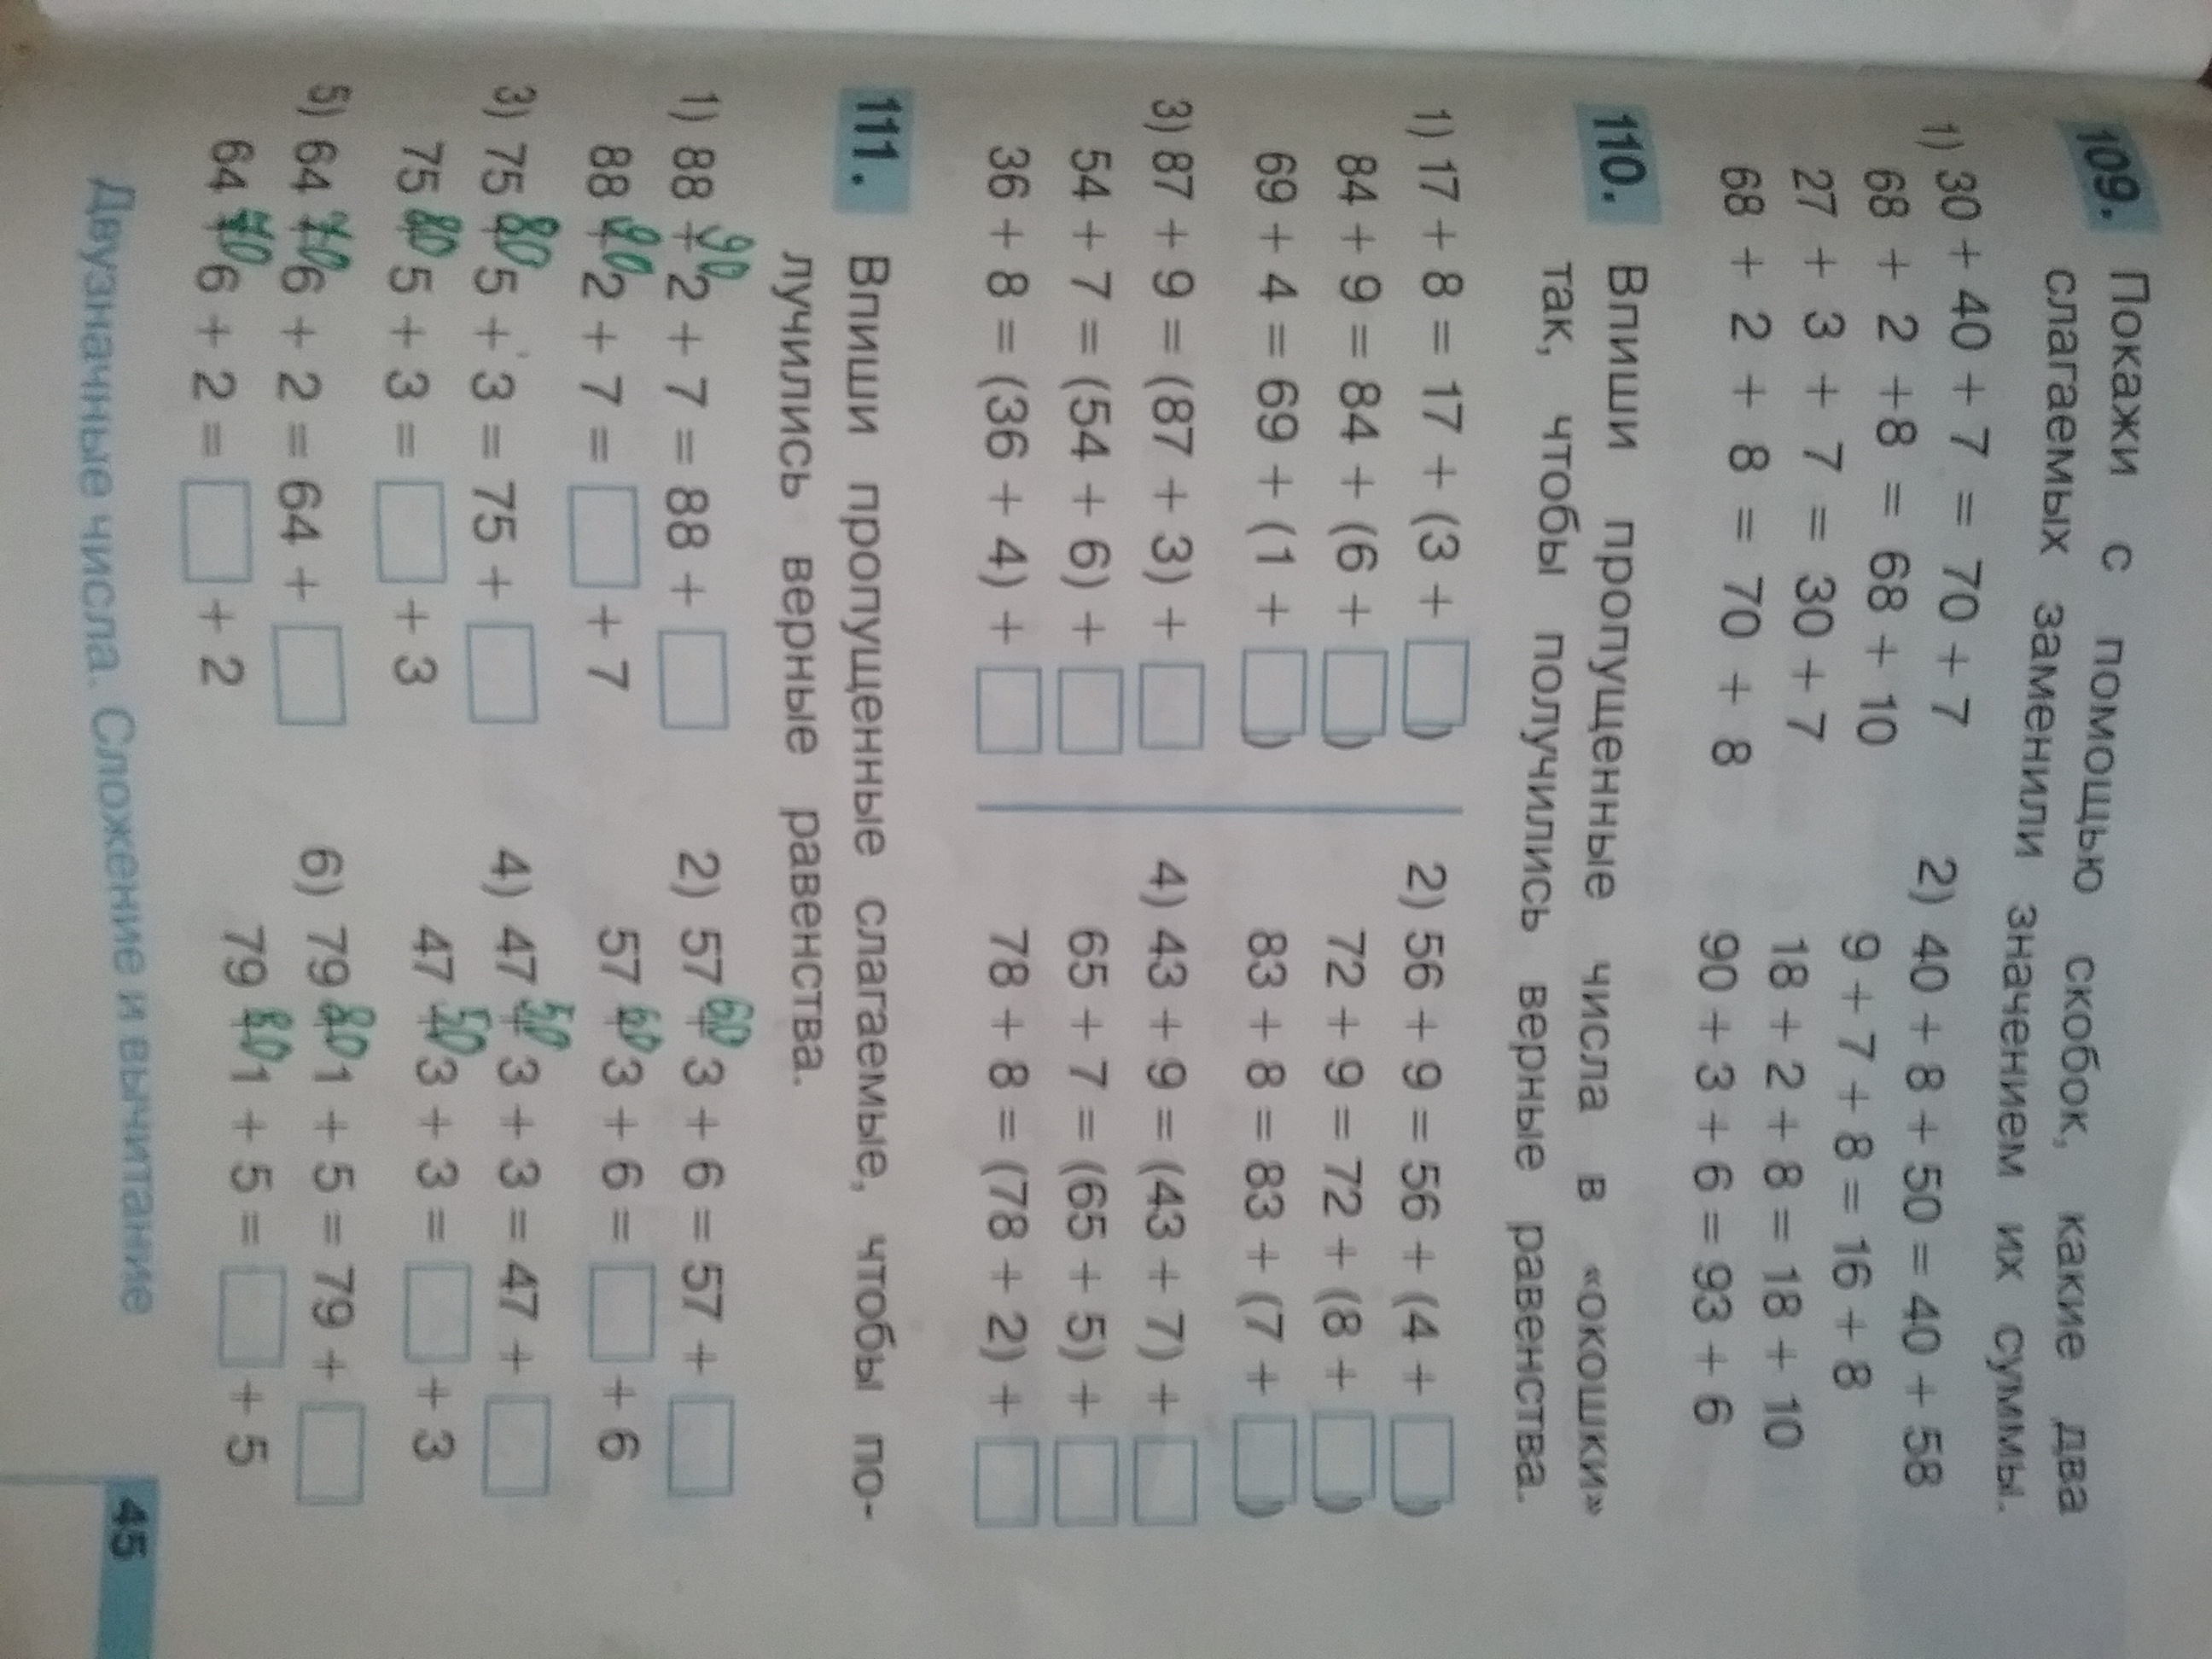 109. Покажи с помощью скобок, какие два
слагаемых заменили значением их суммы.
1) 30 + 40 + 7 = 70 + 7
68 + 2 +8 = 68 + 10
27 + 3 + 7 = 30 + 7
68 + 2 + 8 = 70 + 8
2) 40 + 8 + 50 = 40 + 58
9 + 7 + 8 = 16 + 8
18 + 2 + 8 = 18 + 10
90 + 3 + 6 = 93 + 6
110. Впиши пропущенные числа в «окошки»
так, чтобы получились верные равенства.
1) 17 + 8 = 17 + (3 + □)
84 + 9 = 84 + (6 + □)
69 + 4 = 69 + (1 + □)
3) 87 + 9 = (87 + 3) + □
54 + 7 = (54 + 6) + □
36 + 8 = (36 + 4) + □
2) 56 + 9 = 56 + (4 + □)
72 + 9 = 72 + (8 + □)
83 + 8 = 83 + (7 + □)
4) 43 + 9 = (43 + 7) + □
65 + 7 = (65 + 5) + □
78 + 8 = (78 + 2) + □
111. Впиши пропущенные слагаемые, чтобы по-
лучились верные равенства.
90
1) 88 + 2 + 7 = 88 + □
90
88 + 2 + 7 = □ + 7
80
3) 75 + 5 + 3 = 75 + □
80
75 + 5 + 3 = □ + 3
70
5) 64 + 6 + 2 = 64 + □
70
64 + 6 + 2 = □ + 2
60
2) 57 + 3 + 6 = 57 + □
60
57 + 3 + 6 = □ + 6
50
4) 47 + 3 + 3 = 47 + □
50
47 + 3 + 3 = □ + 3
80
6) 79 + 1 + 5 = 79 + □
80
79 + 1 + 5 = □ + 5
Двузначные числа. Сложение и вычитание
45